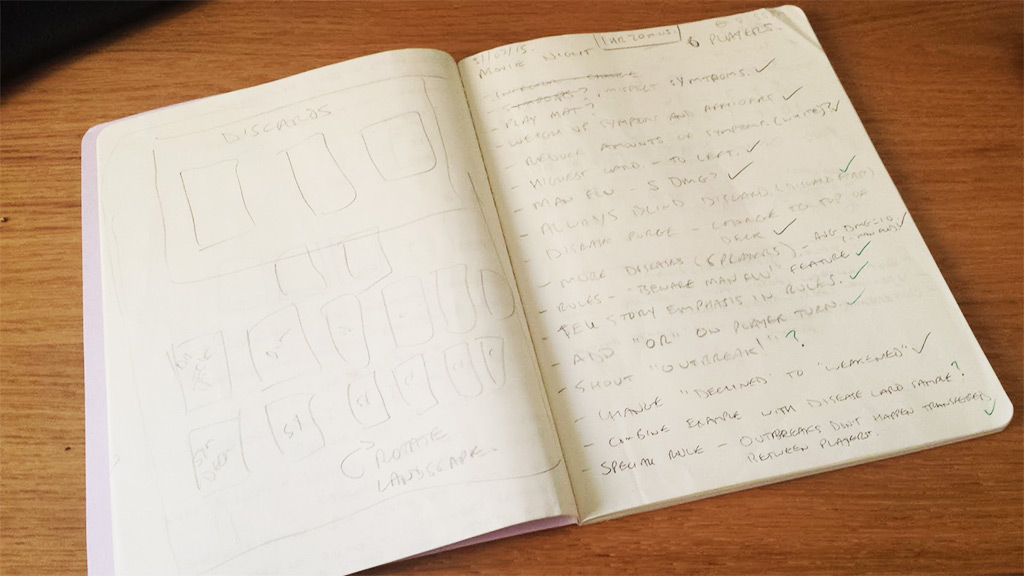 DISCARDS
ST
ROTATE
LANDSCAPE.
31/07/15.
MOVIE NIGHT
6 PLAYERS.
SYMPTOMS. ✓
- PLAY MAT?
SYMPTOMS AND ✓
- REDUCE AMOUNTS OF SYMPTOMS (WHITE)? ✓
- HIGHEST CARD - TO LEFT. ✓
- MAN FLU - 5 DMG? ✓
- ALWAYS BLIND DISCARD ✓
- DISEASE PURGE - CHANGE TO TOP OF
DECK ✓
- MORE DISEASES (6 PLAYERS) - ✓
- RULES - "BEWARE MAN FLU" FEATURE ✓
- TELL STORY EMPHASIS IN RULES. ✓
- ADD "OR" ON PLAYER TURN ✓
- SHOUT "OUTBREAK!" ?
- CHANGE "DECLINED" TO "WEAKENED" ✓
- COMBINE EXAMPLE WITH DISEASE CARD ?
- SPECIAL RULE - OUTBREAKS DON'T HAPPEN
BETWEEN PLAYERS. ✓